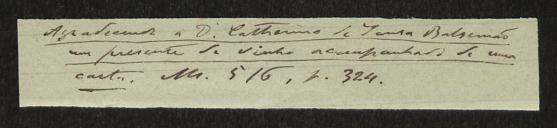 Agradecendo a D. Catherina de Sousa Balsemão
um presente de vinho acompanhado de uma
carta. Ms. 516, f. 324.